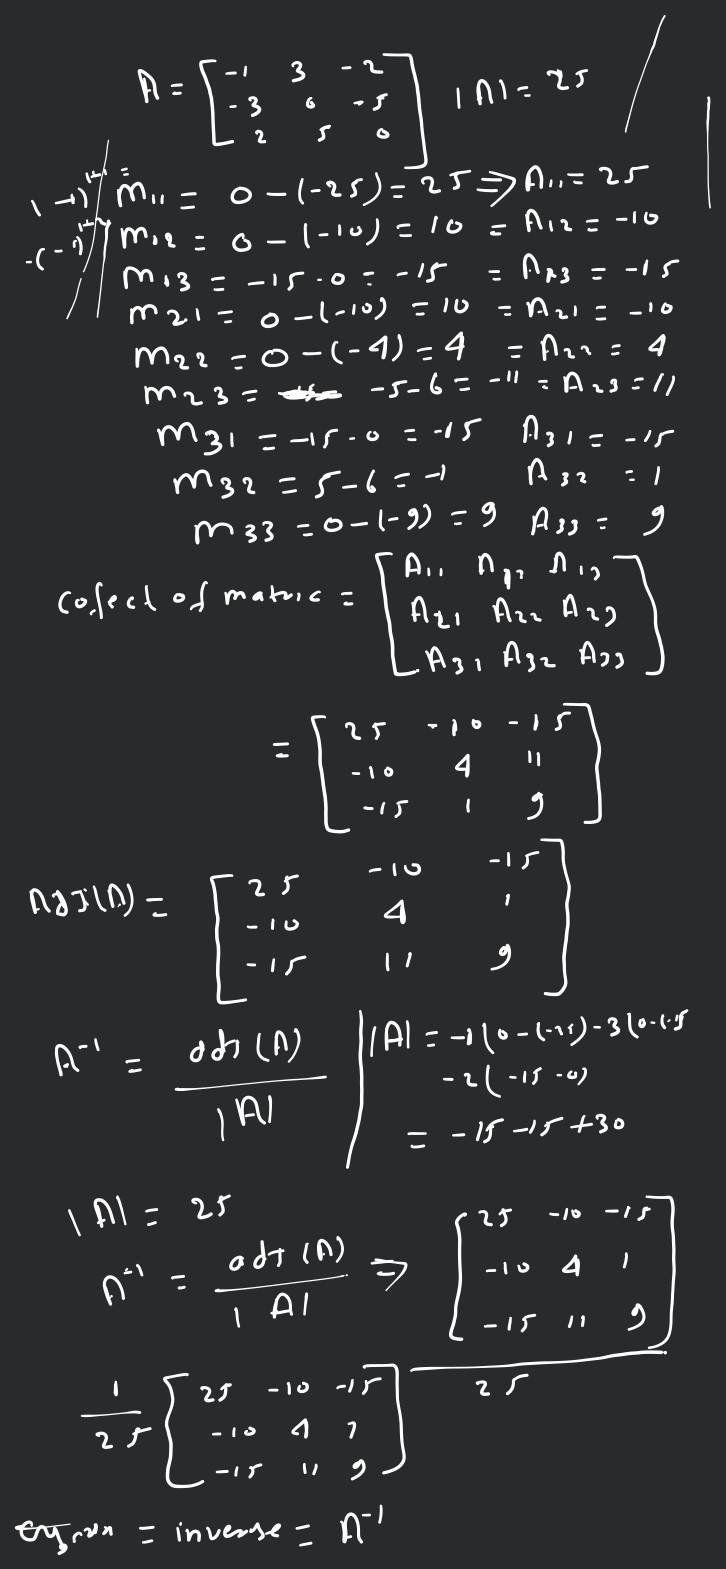 A = [ -1 3 -2
-3 0 -5
2 5 0 ] |A| = 25
m11 = 0 - (-25) = 25 => A11 = 25
m12 = 0 - (-10) = 10 = A12 = -10
m13 = -15 - 0 = -15 = A13 = -15
m21 = 0 - (-10) = 10 = A21 = -10
m22 = 0 - (-4) = 4 = A22 = 4
m23 = -5 - 6 = -11 = A23 = 11
m31 = -15 - 0 = -15 A31 = -15
m32 = 5 - 6 = -1 A32 = 1
m33 = 0 - (-9) = 9 A33 = 9
cofect of matric = [ A11 A12 A13
A21 A22 A23
A31 A32 A33 ]
= [ 25 -10 -15
-10 4 11
-15 1 9 ]
AdJ(A) = [ 25 -10 -15
-10 4 1
-15 11 9 ]
A^-1 = adj (A) / |A|
|A| = -1(0-(-25)-3(0-(-15
-2(-15-0)
= -15 -15 +30
|A| = 25
A^-1 = adJ (A) / |A| => [ 25 -10 -15
-10 4 1
-15 11 9 ] / 25
1/25 [ 25 -10 -15
-10 4 1
-15 11 9 ]
= inverse = A^-1